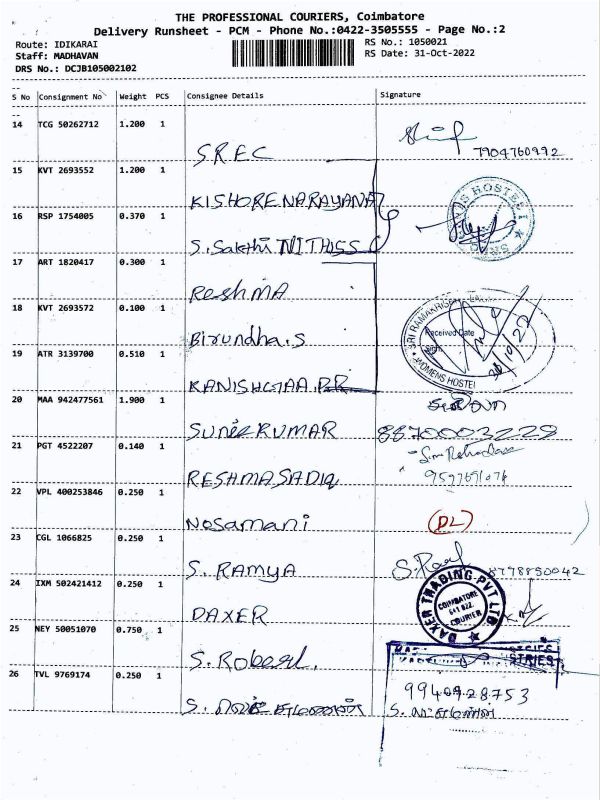 THE PROFESSIONAL COURIERS, Coimbatore
Delivery Runsheet - PCM - Phone No.:0422-3505555 - Page No.:2
Route: IDIKARAI
RS No.: 1050021
Staff: MADHAVAN
RS Date: 31-Oct-2022
DRS No.: DCJB105002102
S No Consignment No Weight PCS Consignee Details Signature
14 TCG 50262712 1.200 1
S.REC 7904760992
15 KVT 2693552 1.200 1
KISHORENARAYANA
16 RSP 1754005 0.370 1
S.Sakthi NITHISS
17 ART 1820417 0.300 1
ReshMA
18 KVT 2693572 0.100 1
Birundha.S
Received Date
WOMENS HOSTEL
19 ATR 3139700 0.510 1
20 MAA 942477561 1.900 1
SUNILKUMAR 8870003229
21 PGT 4522207 0.140 1
RESHMASADIQ
22 VPL 400253846 0.250 1
Nosamani (DL)
23 CGL 1066825 0.250 1
S. RAMYA 8778850042
24 IXM 502421412 0.250 1
DAXER
DAXER TRADING PVT LTD
COIMBATORE
641 022.
COURIER
25 NEY 50051070 0.750 1
26 TVL 9769174 0.250 1
9940928753